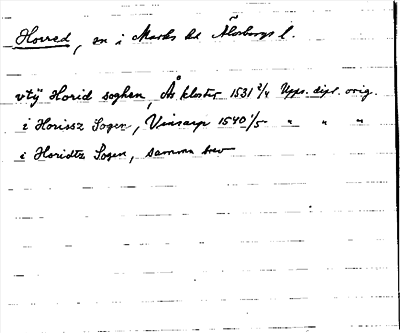 Horred, sn i Marks hd Älvsborgs l.
vtÿ Horid soghen, Ås kloster 1531 2/4 Upps. dipl. orig.
i Horissz Sogen, Vinsarp 1540 1/5 " " "
i Horidtz Sogen, samma brev